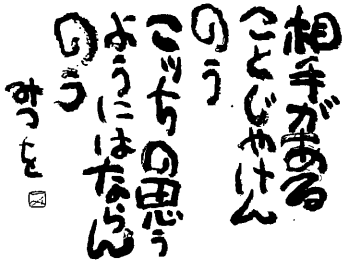 相手がある
ことじゃけん
のう
こッちの思う
ようにはならん
のう
みつを